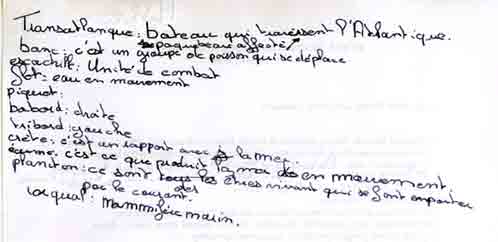 Transatlanque : bateau qui traversent l'Atlantique.
paquebeau affecté
banc : c'est un groupe de poisson qui se déplace
escactift : Unité de combat
flot : eau en mouvement
piquot :
babord : droite
tribord : gauche
crète : c'est un rapport avec la mer.
écume : c'est ce que produit la mer en mouvement
plancton : ce sont tous les êtres vivant qui se font emporter
par le courant.
rorqual : mammifère marin.